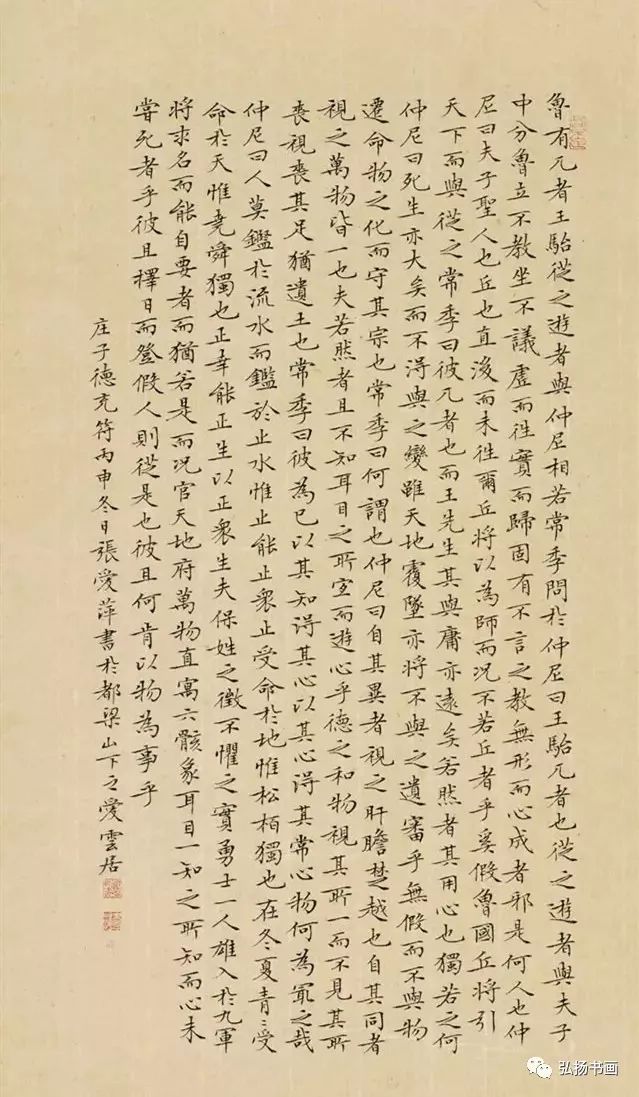 魯有兀者王駘從之遊者與仲尼相若常季問於仲尼曰王駘兀者也從之遊者與夫子
中分魯立不教坐不議虛而往實而歸固有不言之教無形而心成者邪是何人也仲
尼曰夫子聖人也丘也直後而未往爾丘將以為師而况不若丘者乎奚假魯國丘將引
天下而與從之常季曰彼兀者也而王先生其與庸亦遠矣若然者其用心也獨若之何
仲尼曰死生亦大矣而不得與之變雖天地覆墜亦將不與之遺審乎無假而不與物
遷命物之化而守其宗也常季曰何謂也仲尼曰自其異者視之肝膽楚越也自其同者
視之萬物皆一也夫若然者且不知耳目之所宜而遊心乎德之和物視其所一而不見其所
喪視喪其足猶遺土也常季曰彼為己以其知得其心以其心得其常心物何為冣之哉
仲尼曰人莫鑑於流水而鑑於止水惟止能止衆止受命於地惟松栢獨也在冬夏青〻受
命於天惟堯舜獨也正幸能正生以正衆生夫保姓之徵不懼之實勇士一人雄入於九軍
將求名而能自要者而猶若是而况官天地府萬物直寓六骸象耳目一知之所知而心未
嘗死者乎彼且擇日而登假人則從是也彼且何肯以物為事乎
庄子德充符丙申冬日張愛萍書於都梁山下之愛雲居
弘扬书画